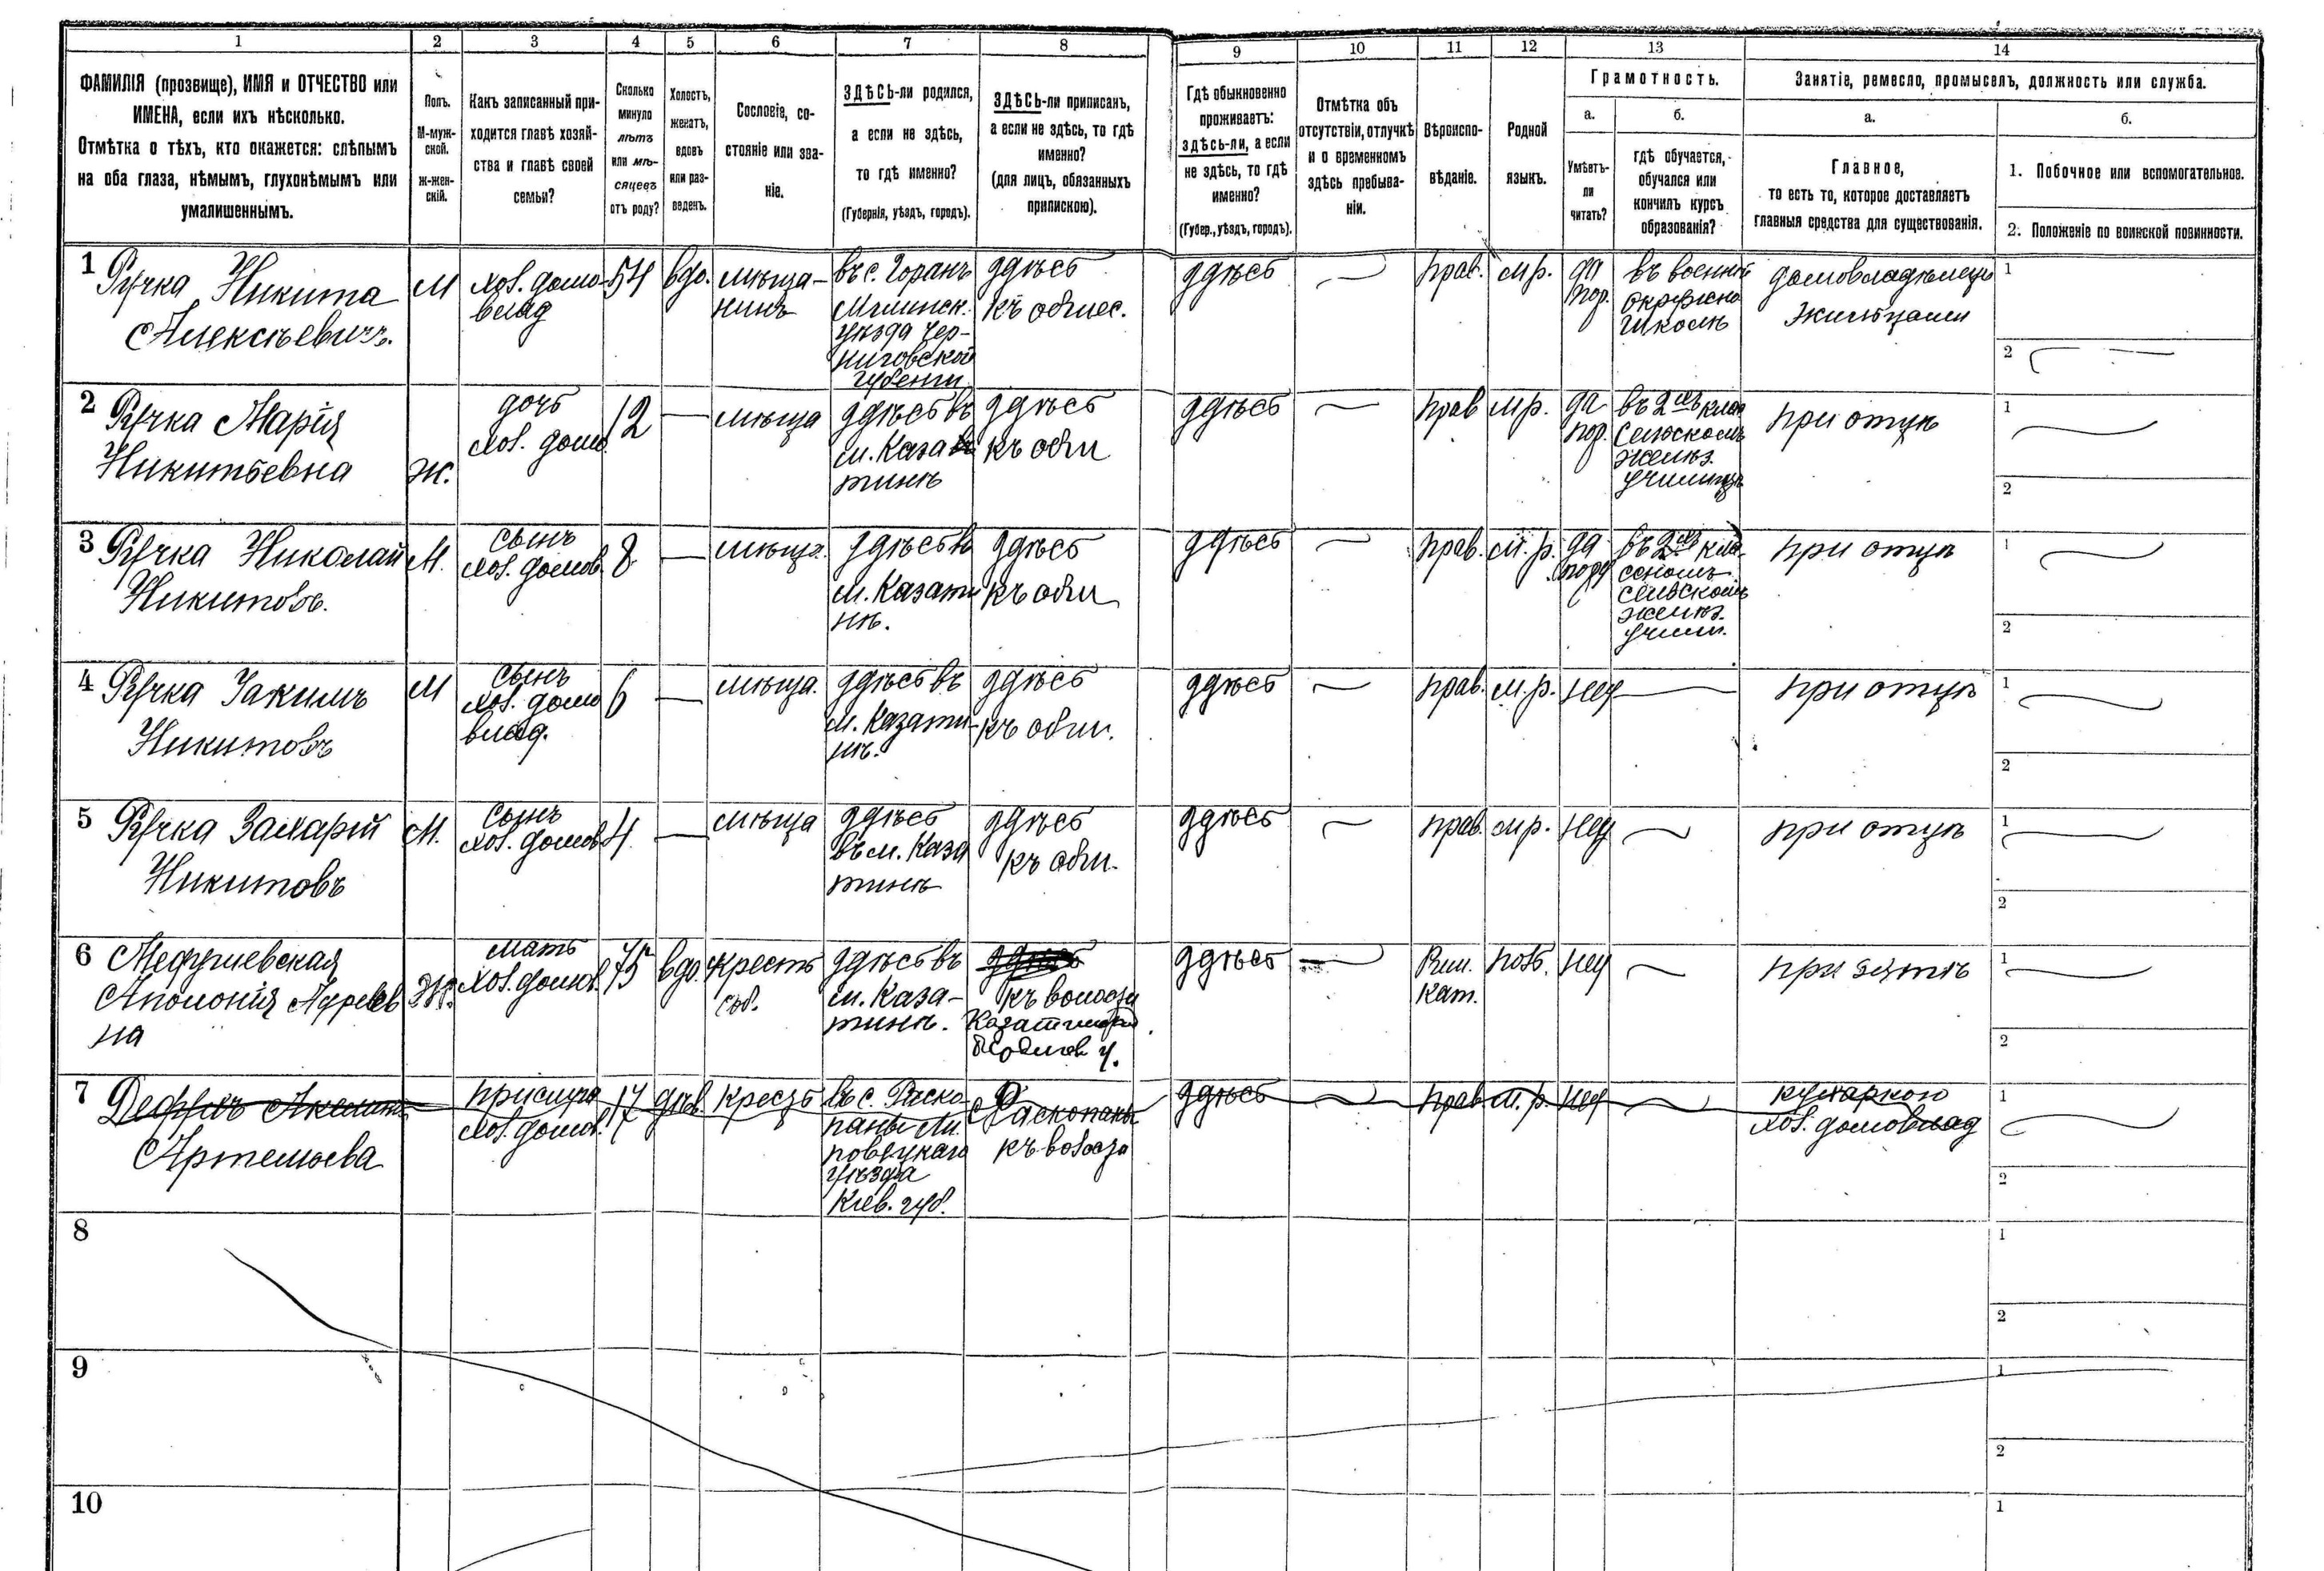 1 2 3 4 5 6 7 8 9 10 11 12 13 14
ФАМИЛІЯ (прозвище), ИМЯ и ОТЧЕСТВО или
ИМЕНА, если ихъ нѣсколько.
Отмѣтка о тѣхъ, кто окажется: слѣпымъ
на оба глаза, нѣмымъ, глухонѣмымъ или
умалишеннымъ.
Полъ.
М-муж-
ской.
Ж-жен-
скій.
Какъ записанный при-
ходится главѣ хозяй-
ства и главѣ своей
семьи?
Сколько
минуло
лѣтъ
или мѣ-
сяцевъ
отъ роду?
Холостъ,
женатъ,
вдовъ
или раз-
веденъ.
Сословіе, со-
стояніе или зва-
ніе.
ЗДѢСЬ-ли родился,
а если не здѣсь,
то гдѣ именно?
(Губернія, уѣздъ, городъ).
ЗДѢСЬ-ли приписанъ,
а если не здѣсь, то гдѣ
именно?
(для лицъ, обязанныхъ
припискою).
Гдѣ обыкновенно
проживаетъ:
здѣсь-ли, а если
не здѣсь, то гдѣ
именно?
(Губер., уѣздъ, городъ).
Отмѣтка объ
отсутствіи, отлучкѣ
и о временномъ
здѣсь пребыва-
ніи.
Вѣроиспо-
вѣданіе.
Родной
языкъ.
Грамотность.
а.
Умѣетъ-
ли
читать?
б.
гдѣ обучается,
обучался или
кончилъ курсъ
образованія?
Занятіе, ремесло, промыселъ, должность или служба.
а.
Главное,
то есть то, которое доставляетъ
главныя средства для существованія.
б.
1. Побочное или вспомогательное.
2. Положеніе по воинской повинности.
1
Ручка Никита
Алексѣевичъ.
М
хоз. домо
влад
54
вдо.
мѣща-
нинъ
въ с.
Мглинск.
уѣзда Чер-
ниговской
здѣсь
къ общес.
здѣсь
—
прав.
м р.
да
въ
школѣ
1
2
2
Ручка Марія
Никитьевна
ж.
дочь
хоз. домо
12
—
мѣща
здѣсь въ
м. Каза
тинѣ
здѣсь
къ общ
здѣсь
—
прав
м р.
да
въ 2
желѣз.
училищѣ
при отцѣ
1
2
3
Ручка Николай
Никитовъ.
М.
сынъ
хоз. домов
8
—
мѣща.
здѣсь въ
м. Казати
нѣ.
здѣсь
къ общ
здѣсь
—
прав.
м. р.
да
въ 2
желѣз.
учили.
при отцѣ
1
2
4
Ручка Іакимъ
Никитовъ
М
сынъ
хоз. домо
влад.
6
—
мѣща.
здѣсь въ
м. Казати-
нѣ.
здѣсь
къ общ.
здѣсь
—
прав.
м. р.
нѣт
—
при отцѣ
1
2
5
Ручка Захарій
Никитовъ
М.
сынъ
хоз. домов
4
—
мѣща
здѣсь
въ м. Каза
тинѣ
здѣсь
къ общ.
здѣсь
—
прав.
м р.
нѣт
—
при отцѣ
1
2
6
Аполонія
на
Ж.
мать
хоз. домов.
75
вдо.
крестя
здѣсь въ
м. Каза-
тинѣ.
къ
здѣсь
—
Рим.
Кат.
поль.
нѣт
—
при зятѣ
1
2
7
Артемьева
прислуга
хоз. домов.
17
дѣв.
въ с. Раско
паны Ли
повецкаго
уѣзда
Кіев. губ.
здѣсь
—
прав
м. р.
нѣт
—
кухаркою
хоз. домовлад
1
2
8
1
2
9
1
2
10
1